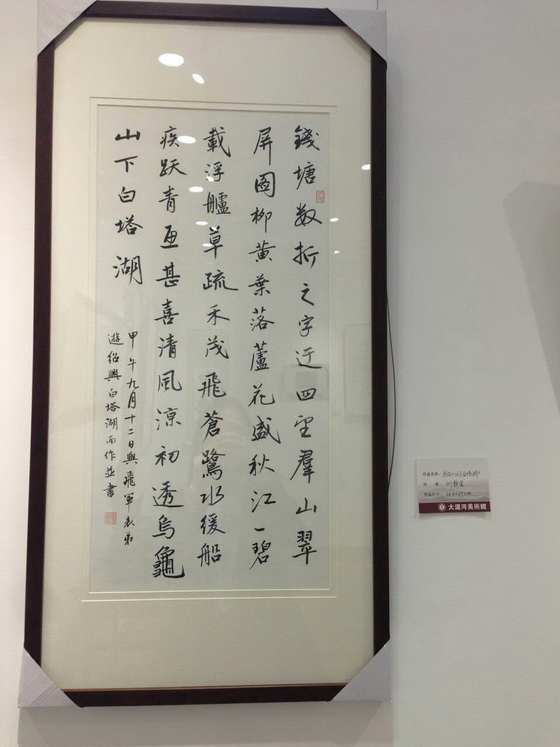 錢塘数折之字迂四望羣山翠
屏圍柳黄葉落蘆花盛秋江一碧
載浮艫草疏禾茂飛蒼鷺水緩船
疾跃青魚甚喜清風涼初透烏龜
山下白塔湖
甲午九月十二日與飛軍表弟
遊紹興白塔湖而作並書
大運河美術館